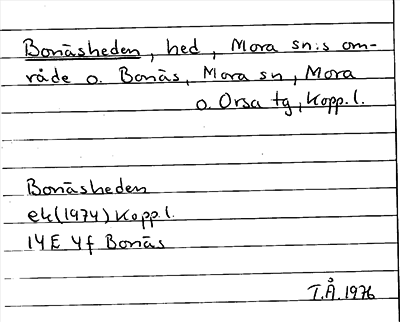 Bonäsheden, hed, Mora sn:s om-
råde o. Bonäs, Mora sn, Mora
o. Orsa tg, Kopp.l.
Bonäsheden
ek(1974) Kopp.l.
14E 4f Bonäs
T.Å. 1976